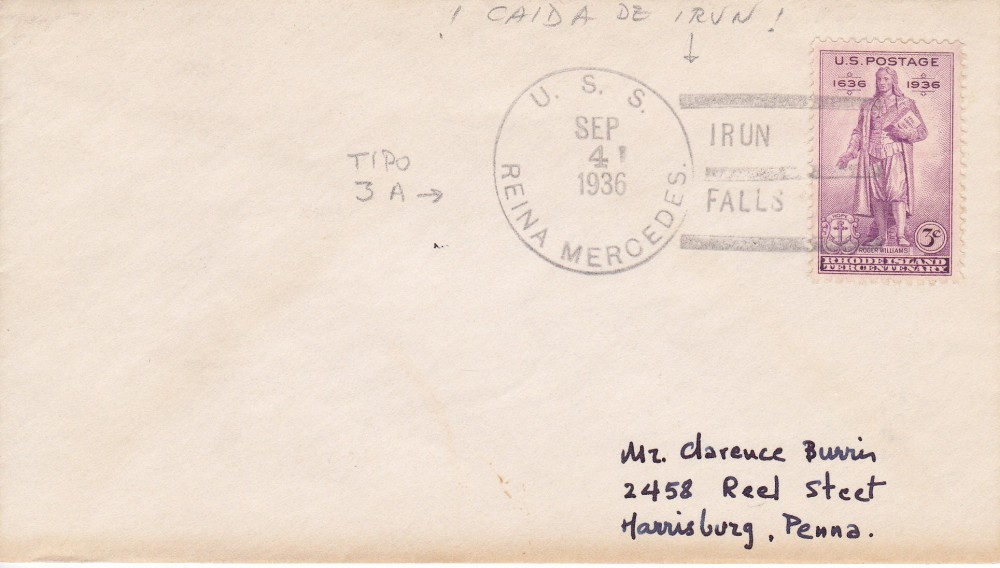 ¡ CAIDA DE IRUN !
U.S. POSTAGE
1636 1936
HOPE
ROGER WILLIAMS
3c
RHODE ISLAND
TERCENTENARY
U. S. S.
REINA MERCEDES.
SEP
4
1936
IRUN
FALLS
TIPO
3A →
Mr. Clarence Burris
2458 Reel Steet
Harrisburg, Penna.